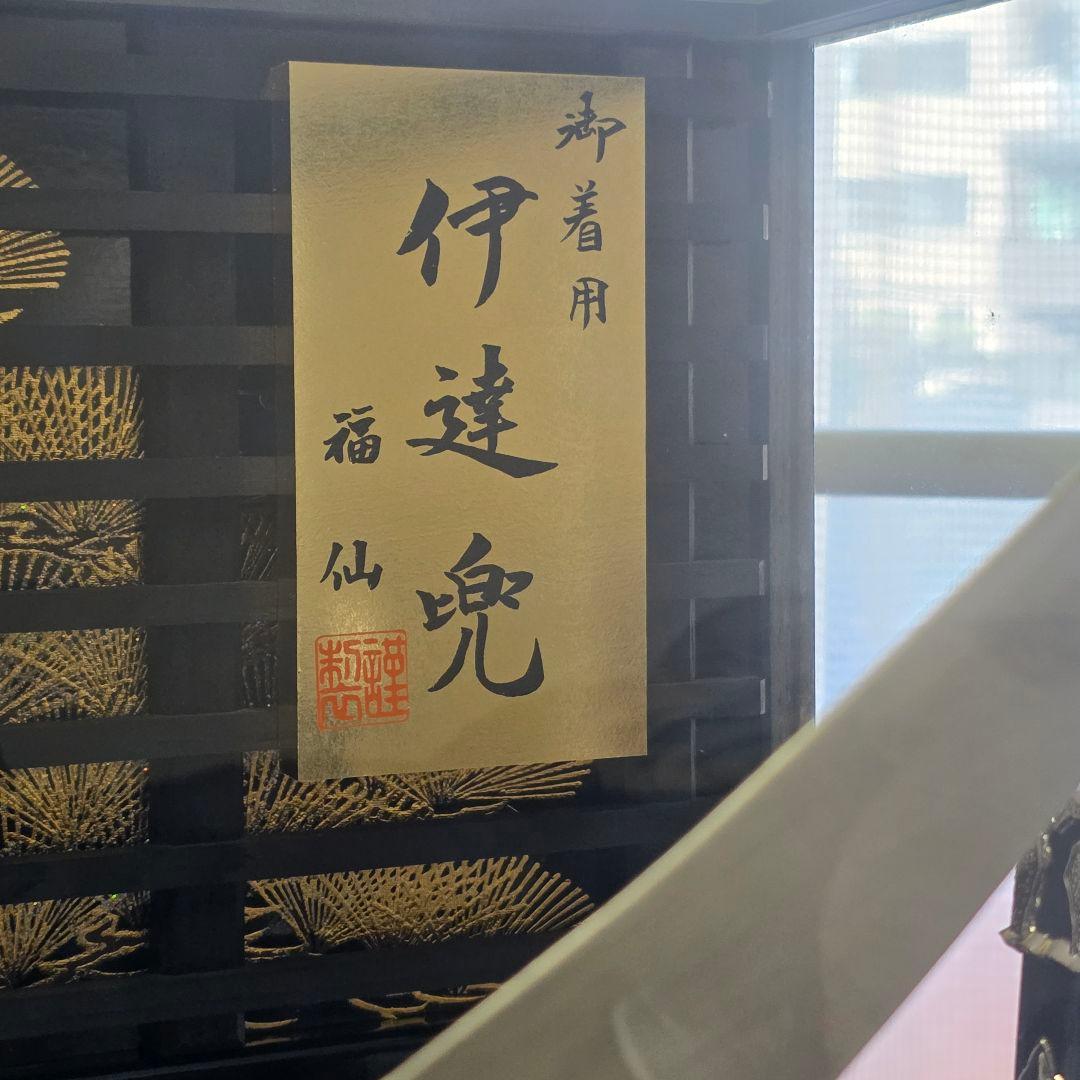 御着用
伊達兜
福仙
謹製